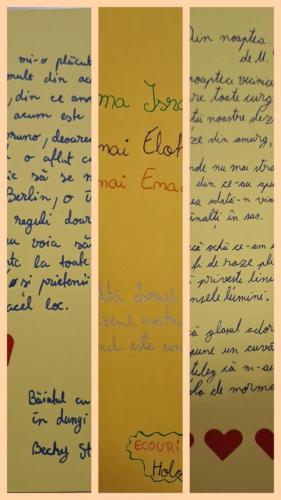 mi-o plăcut
mult din ac
, din ce an
acum este
runo, deoare
o aflat c
ic să se m
Berlin, o
reguli doar
au voia să
te la toate
o și prietenii
acel loc.
Băiatul cu
în dungi
Becky St
ma Isra
nai Eloh
nai Ena
ltă Israel
zeul nostru
nul este
ECOURI
Holo
Din noaptea
de M.
noaptea veciniciei
re toate curg
tu noastre dez
ze din amurg,
nde nu mai stra
din ce-au spu
ea odat-n via
înalți în sus.
că ochii ce-am
de raze pl
privește lin
nsele lumini.
că glasul ador
spune un cuvâ
țeleg că m-a
lo de morm